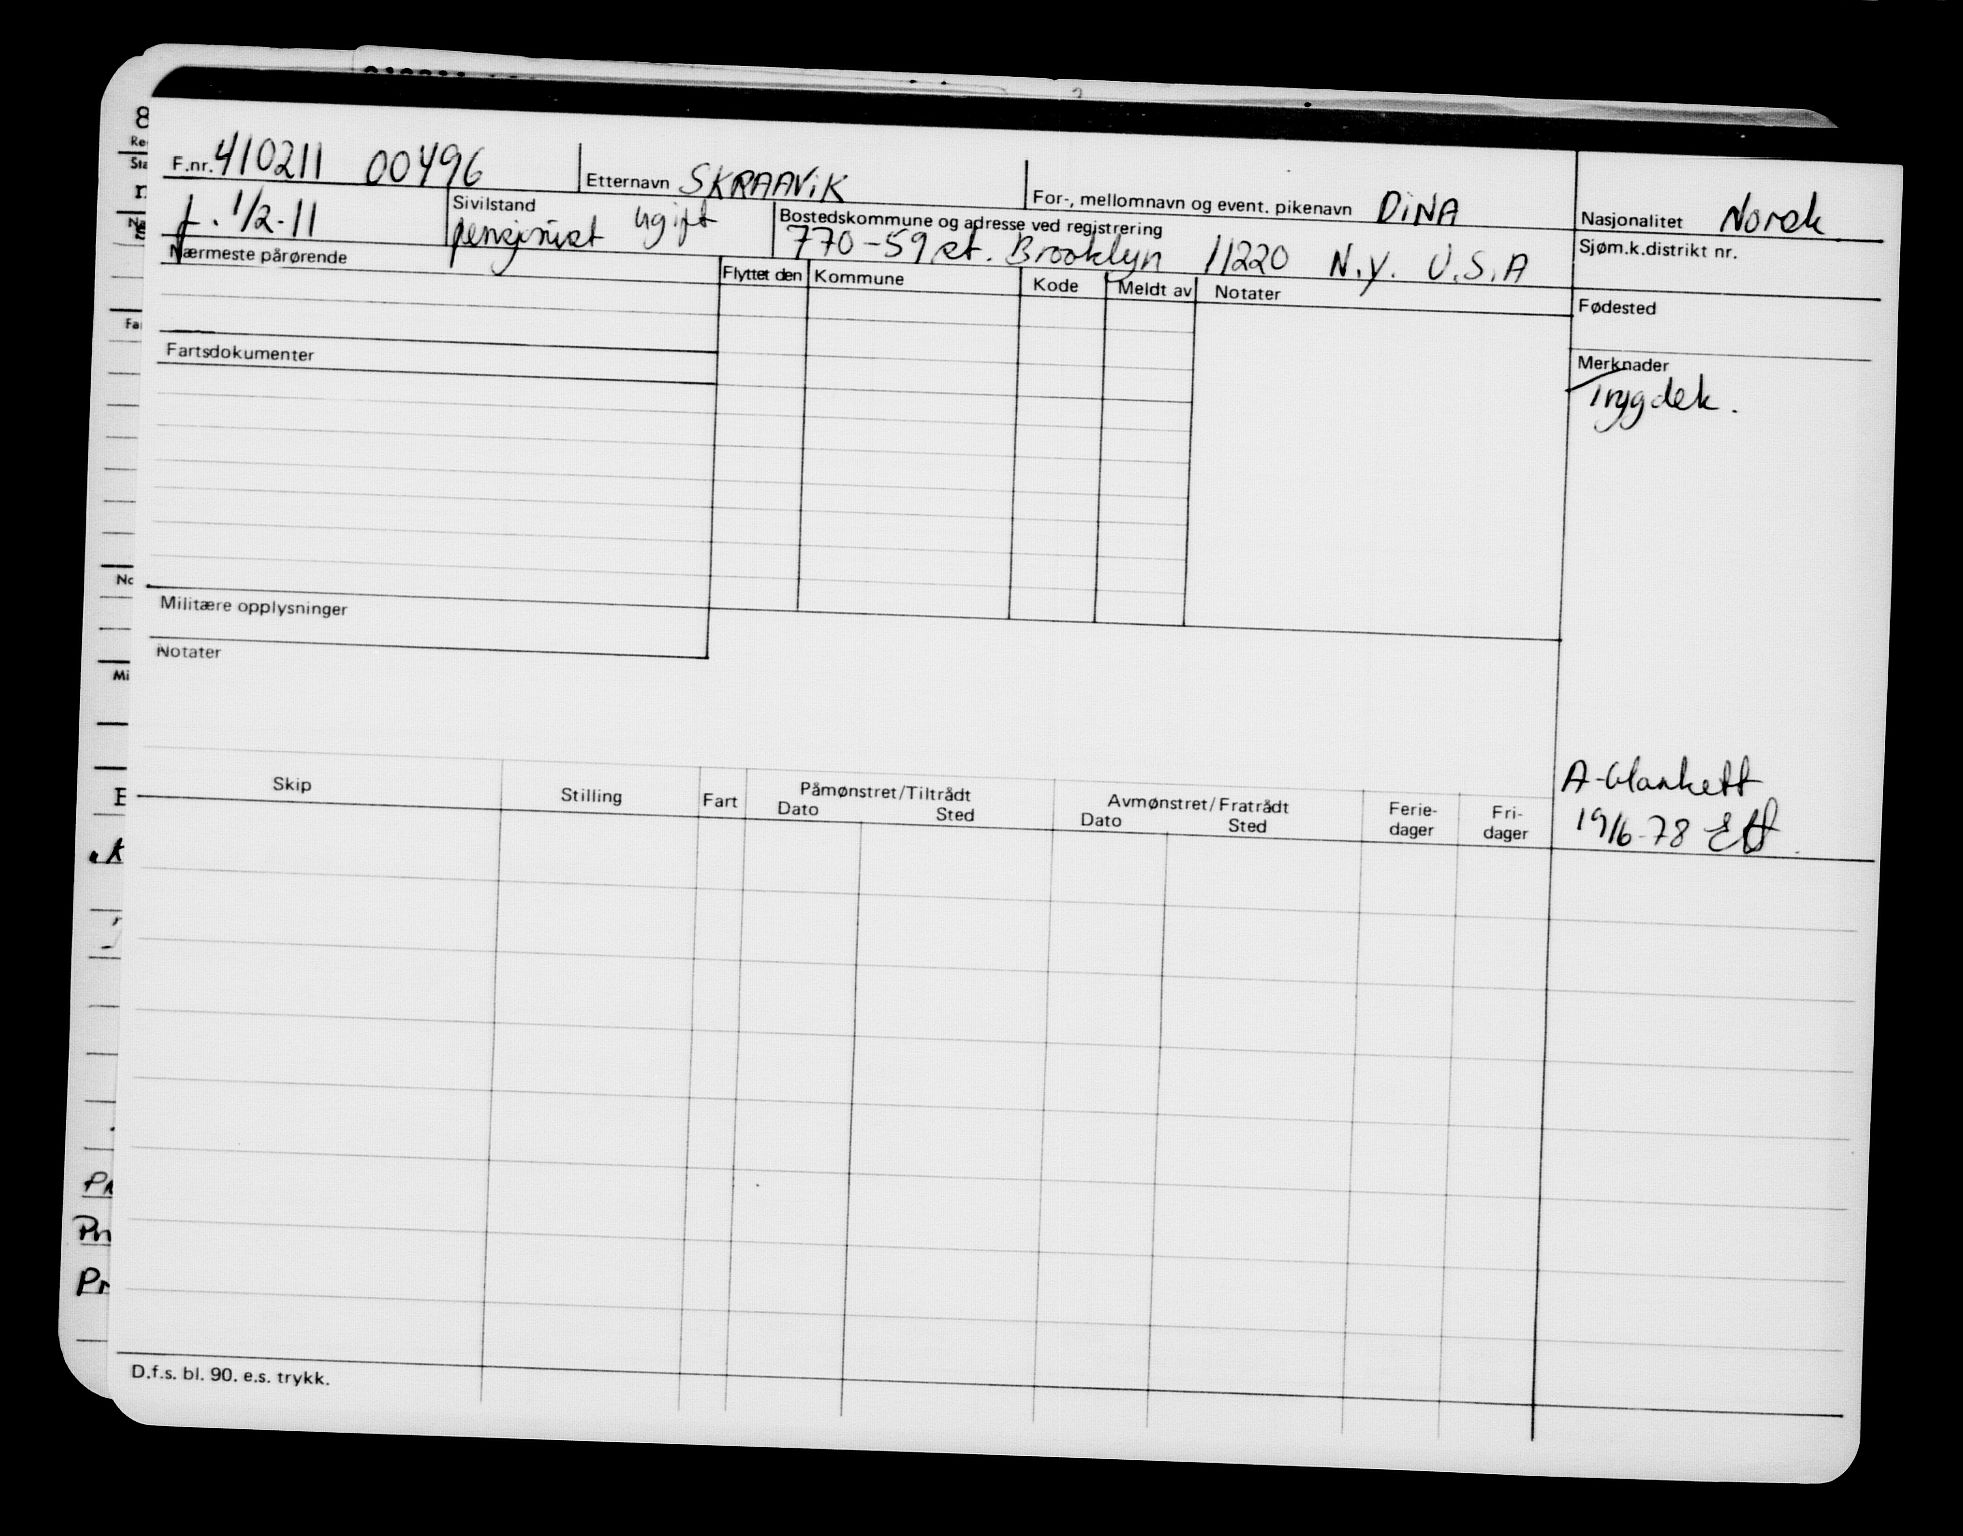 F.nr. 410211 00496 Etternavn SKRAAViK For-, mellomnavn og event. pikenavn DiNA Nasjonalitet Norsk
f. 1/2-11 Sivilstand pensjonist ugift Bostedskommune og adresse ved registrering Sjøm.k.distrikt nr.
770-59 st. Brooklyn 11220 N.Y. U.S.A
Nærmeste pårørende Flyttet den Kommune Kode Meldt av Notater Fødested
Fartsdokumenter Merknader
Trygdek.
Militære opplysninger
Notater
A-blankett
19/6-78
Skip Stilling Fart Påmønstret/Tiltrådt Avmønstret/Fratrådt Ferie- Fri-
Dato Sted Dato Sted dager dager
D.f.s. bl. 90. e.s. trykk.
8
Re
Sta
Na
Fa
No
Mi
E
Pr